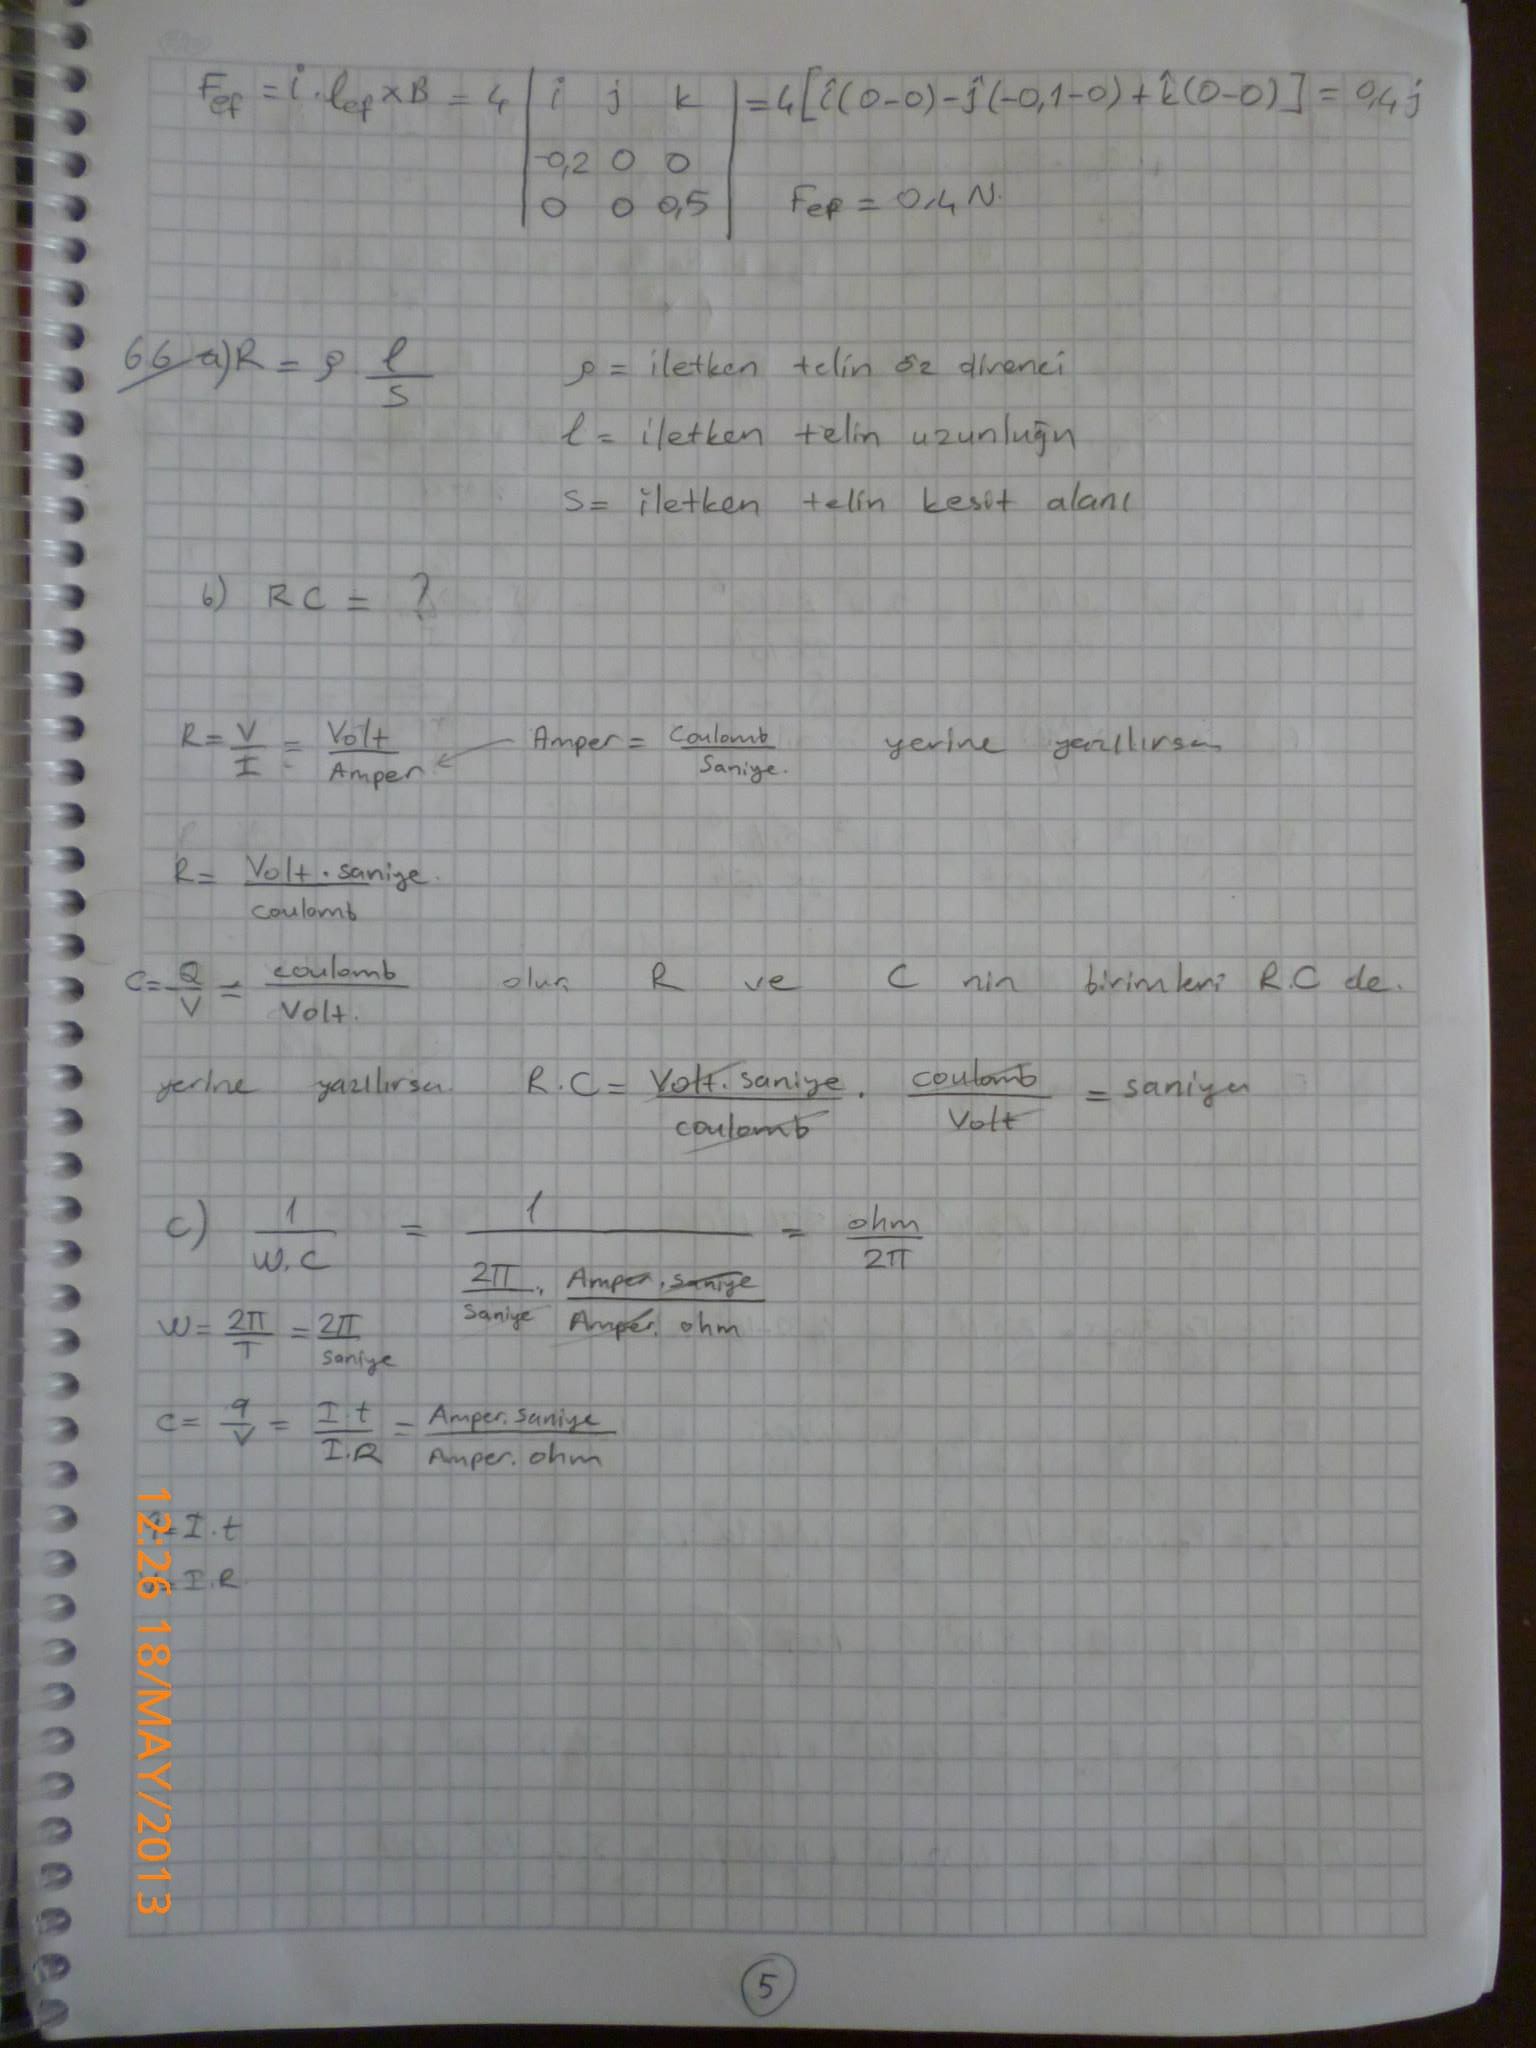 Fef = i.lef x B = 4 | i j k | = 4[î(0-0)-ĵ(-0,1-0)+k̂(0-0)] = 0,4 j
-0,2 0 0
0 0 0,5 Fef = 0,4 N.
66 a) R = ρ l/s ρ = iletken telin öz direnci
l = iletken telin uzunluğu
s = iletken telin kesit alanı
b) RC = ?
R = V/I = Volt/Amper ← Amper = Coulomb/Saniye. yerine yazılırsa
R = Volt.saniye./coulomb
C = Q/V = coulomb/Volt. olur R ve C nin birimleri R.C de.
yerine yazılırsa R.C = Volt.saniye/coulomb . coulomb/Volt = saniye
c) 1/w.c = 1/(2π/saniye . Amper.saniye/Amper.ohm) = ohm/2π
w = 2π/T = 2π/saniye
c = q/V = I.t/I.R = Amper.saniye/Amper.ohm
q=I.t
=I.R
12:26 18/MAY/2013
5